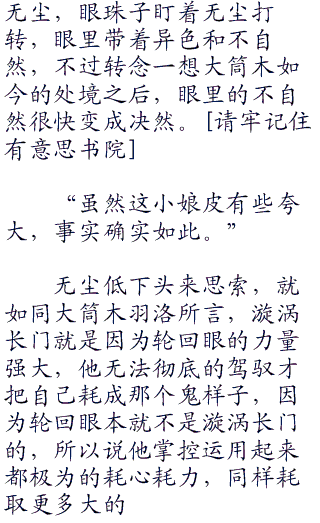 无尘，眼珠子盯着无尘打
转，眼里带着异色和不自
然，不过转念一想大筒木如
今的处境之后，眼里的不自
然很快变成决然。[请牢记住
有意思书院]
“虽然这小娘皮有些夸
大，事实确实如此。”
无尘低下头来思索，就
如同大筒木羽洛所言，漩涡
长门就是因为轮回眼的力量
强大，他无法彻底的驾驭才
把自己耗成那个鬼样子，因
为轮回眼本就不是漩涡长门
的，所以说他掌控运用起来
都极为的耗心耗力，同样耗
取更多大的